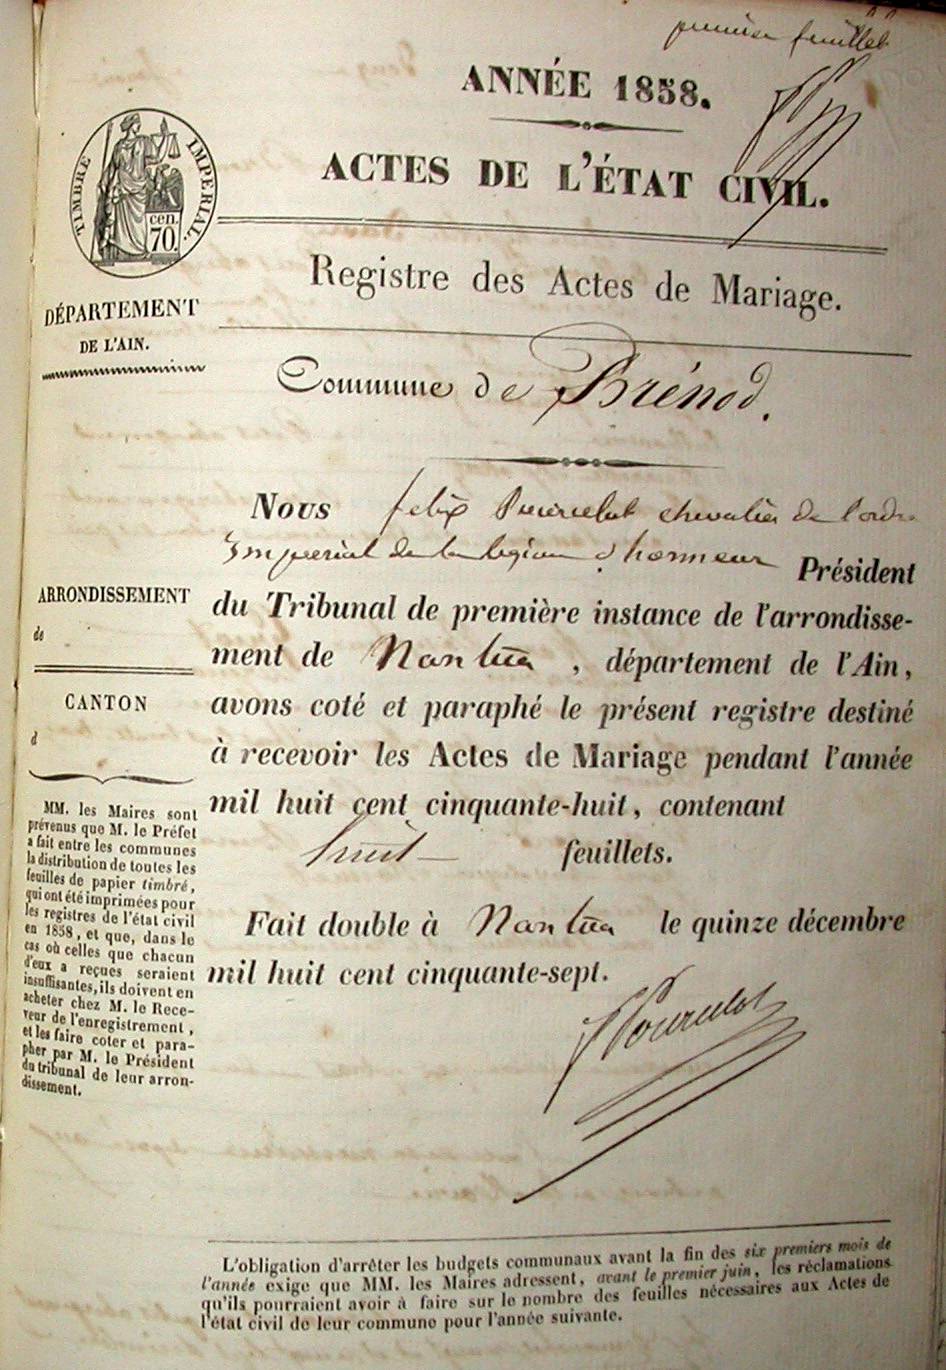 premier feuillet
ANNÉE 1858.
ACTES DE L'ÉTAT CIVIL.
TIMBRE IMPÉRIAL.
cen.
70.
Registre des Actes de Mariage.
DÉPARTEMENT
DE L'AIN.
Commune de Brénod.
Nous felix Pourcelot chevalier de l'ordre
Imperial de la legion d'honneur Président
du Tribunal de première instance de l'arrondisse-
ment de Nantua, département de l'Ain,
avons coté et paraphé le présent registre destiné
à recevoir les Actes de Mariage pendant l'année
mil huit cent cinquante-huit, contenant
huit feuillets.
Fait double à Nantua le quinze décembre
mil huit cent cinquante-sept.
Pourcelot
ARRONDISSEMENT
de
CANTON
d
MM. les Maires sont
prévenus que M. le Préfet
a fait entre les communes
la distribution de toutes les
feuilles de papier timbré,
qui ont été imprimées pour
les registres de l'état civil
en 1858, et que, dans le
cas où celles que chacun
d'eux a reçues seraient
insuffisantes, ils doivent en
acheter chez M. le Rece-
veur de l'enregistrement,
et les faire coter et para-
pher par M. le Président
du tribunal de leur arron-
dissement.
L'obligation d'arrêter les budgets communaux avant la fin des six premiers mois de
l'année exige que MM. les Maires adressent, avant le premier juin, les réclamations
qu'ils pourraient avoir à faire sur le nombre des feuilles nécessaires aux Actes de
l'état civil de leur commune pour l'année suivante.